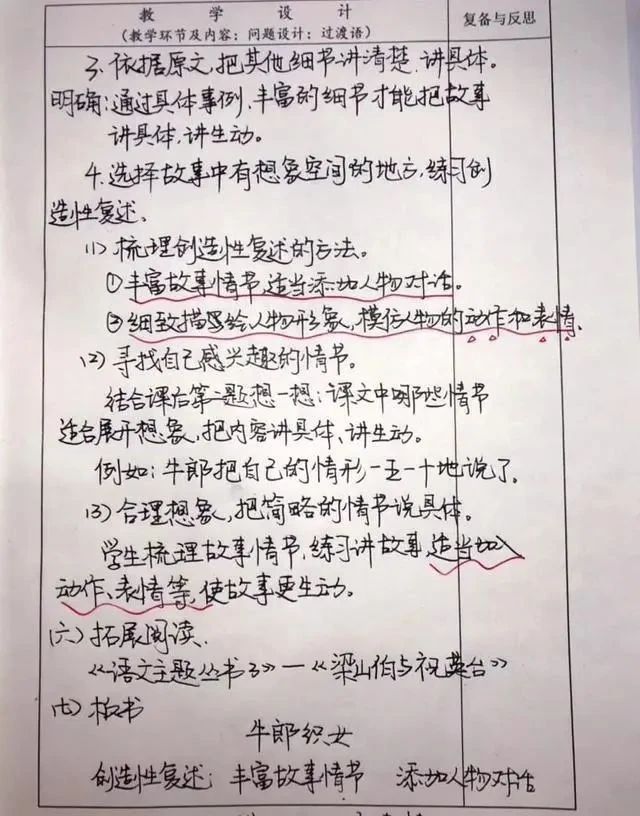 教 学 设 计
（教学环节及内容；问题设计；过渡语）
复备与反思
3、依据原文,把其他细节讲清楚,讲具体。
明确:通过具体事例、丰富的细节才能把故事
讲具体,讲生动。
4、选择故事中有想象空间的地方,练习创
造性复述。
(1) 梳理创造性复述的方法。
①丰富故事情节,适当添加人物对话。
②细致描写绘人物形象,模仿人物的动作和表情。
(2) 寻找自己感兴趣的情节。
结合课后第二题想一想:课文中哪些情节
适合展开想象,把内容讲具体、讲生动。
例如:牛郎把自己的情形一五一十地说了。
(3) 合理想象,把简略的情节说具体。
学生梳理故事情节,练习讲故事,适当加入
动作、表情等,使故事更生动。
(六) 拓展阅读.
《语文主题丛书3》—《梁山伯与祝英台》
(七) 板书
牛郎织女
创造性复述: 丰富故事情节 添加人物对话